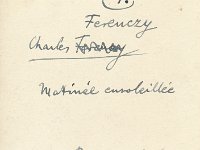 Ferenczy
Charles
Matinée ensoleillée